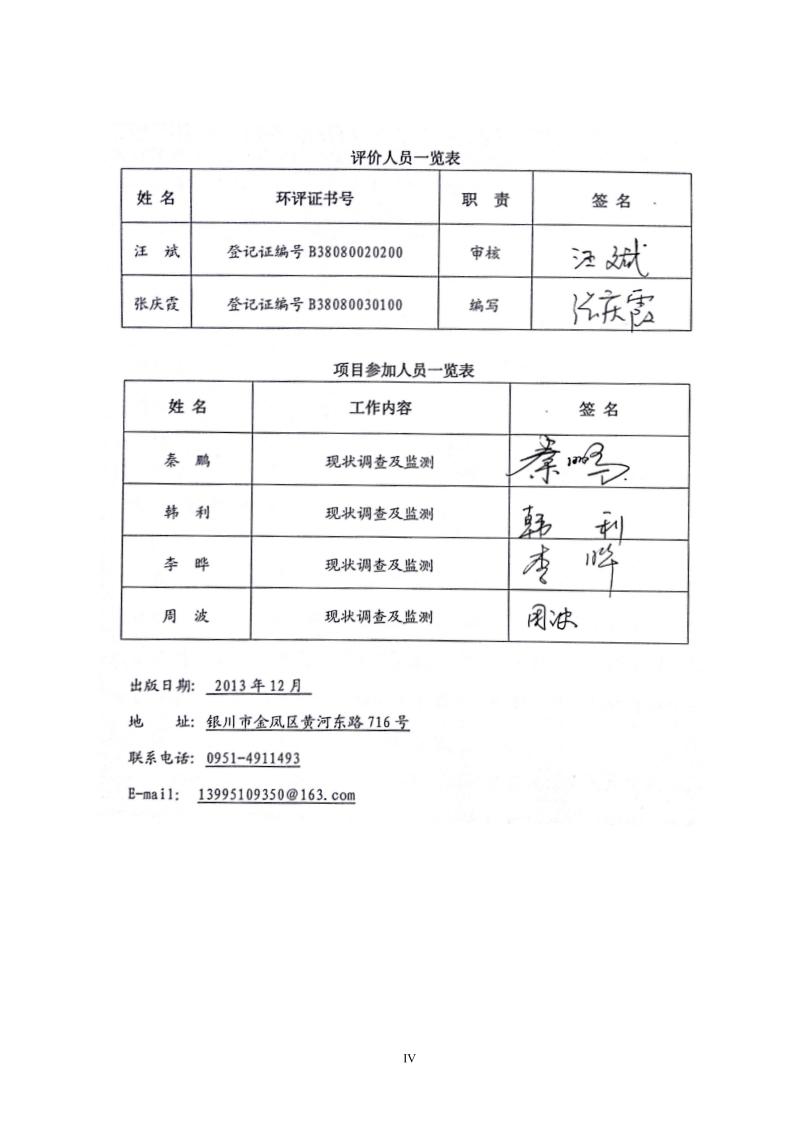 评价人员一览表
姓名 环评证书号 职 责 签名
汪 斌 登记证编号 B38080020200 审核 汪斌
张庆霞 登记证编号 B38080030100 编写 张庆霞
项目参加人员一览表
姓名 工作内容 签名
秦 鹏 现状调查及监测 秦鹏
韩 利 现状调查及监测 韩 利
李 晔 现状调查及监测 李 晔
周 波 现状调查及监测 周波
出版日期: 2013 年 12 月
地 址: 银川市金凤区黄河东路 716 号
联系电话: 0951-4911493
E-mail: 13995109350@163.com
IV